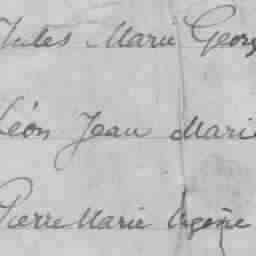 Jules Marie Georg
Léon Jean Mari
Pierre Marie